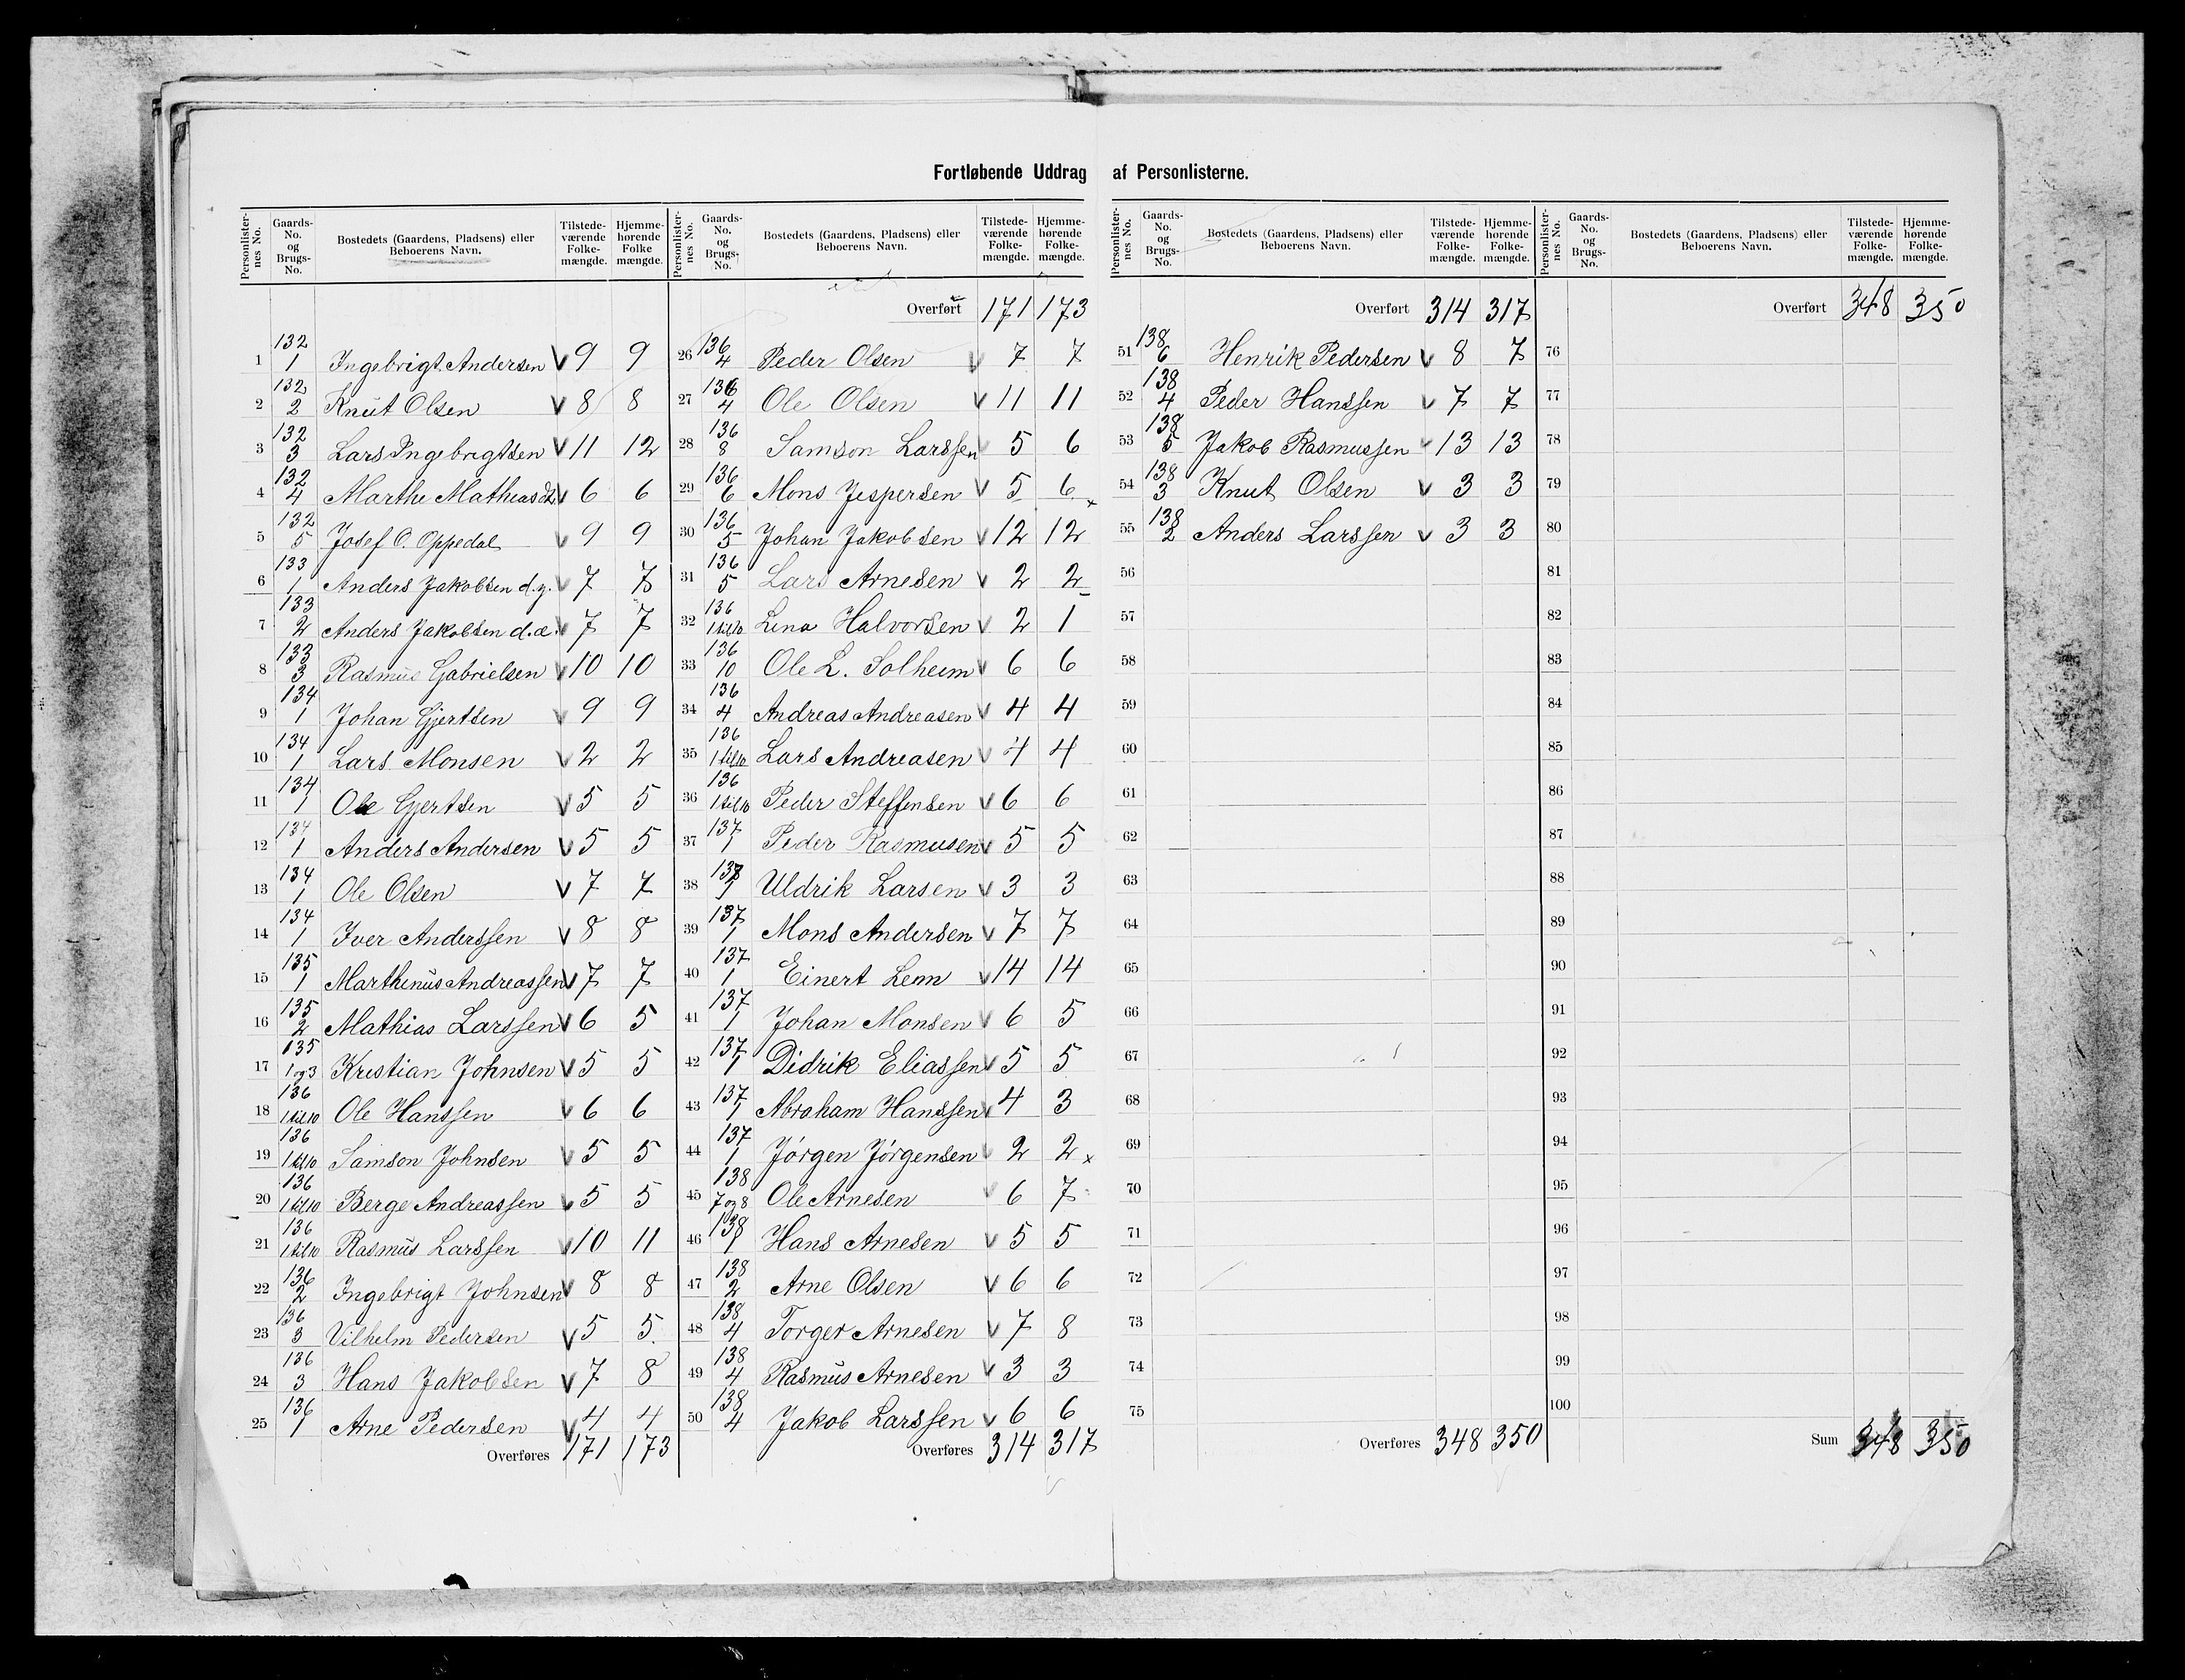 Fortløbende Uddrag af Personlisterne.
Personlisternes No. Gaards-No. og Brugs-No. Bostedets (Gaardens, Pladsens) eller Beboerens Navn. Tilstedeværende Folkemængde. Hjemmehørende Folkemængde.
1 132/1 Ingebrigt Andersen V 9 9
2 132/2 Knut Olsen V 8 8
3 132/3 Lars Ingebrigtsen V 11 12
4 132/4 Marthe Mathiasd. V 6 6
5 132/5 Josef O. Oppedal V 9 9
6 133/1 Anders Jakobsen d.y. V 7 7
7 133/2 Anders Jakobsen d.æ. V 7 7
8 133/3 Rasmus Gabrielsen V 10 10
9 134/1 Johan Gjertsen V 9 9
10 134/1 Lars Monsen V 2 2
11 134/1 Ole Gjertsen V 5 5
12 134/1 Anders Andersen V 5 5
13 134/1 Ole Olsen V 7 7
14 134/1 Iver Anderssen V 8 8
15 135/1 Marthinus Andreassen V 7 7
16 135/2 Mathias Larssen V 6 5
17 135/1 og 3 Kristian Johnsen V 5 5
18 136/1 til 10 Ole Hanssen V 6 6
19 136/1 til 10 Samson Johnsen V 5 5
20 136/1 til 10 Berge Andreassen V 5 5
21 136/1 til 10 Rasmus Larssen V 10 11
22 136/2 Ingebrigt Johnsen V 8 8
23 136/3 Vilhelm Pedersen V 5 5
24 136/3 Hans Jakobsen V 7 8
25 136/1 Arne Pedersen V 4 4
Overføres 171 173
Personlisternes No. Gaards-No. og Brugs-No. Bostedets (Gaardens, Pladsens) eller Beboerens Navn. Tilstedeværende Folkemængde. Hjemmehørende Folkemængde.
Overført 171 173
26 136/4 Peder Olsen V 7 7
27 136/4 Ole Olsen V 11 11
28 136/8 Samson Larssen V 5 6
29 136/6 Mons Jespersen V 5 6 x
30 136/5 Johan Jakobsen V 12 12
31 136/5 Lars Arnesen V 2 2
32 136/1 til 10 Lina Halvorsen V 2 1
33 136/10 Ole L. Solheim V 6 6
34 136/4 Andreas Andreasen V 4 4
35 136/1 til 10 Lars Andreasen V 4 4
36 136/1 til 10 Peder Steffensen V 6 6
37 137/1 Peder Rasmusen V 5 5
38 137/1 Uldrik Larsen V 3 3
39 137/1 Mons Andersen V 7 7
40 137/1 Einert Lem V 14 14
41 137/1 Johan Monsen V 6 5
42 137/1 Didrik Eliassen V 5 5
43 137/1 Abraham Hanssen V 4 3
44 137/1 Jörgen Jörgensen V 2 2 x
45 138/7 og 8 Ole Arnesen V 6 7
46 138/1 Hans Arnesen V 5 5
47 138/2 Arne Olsen V 6 6
48 138/4 Torger Arnesen V 7 8
49 138/4 Rasmus Arnesen V 3 3
50 138/4 Jakob Larssen V 6 6
Overføres 314 317
Personlisternes No. Gaards-No. og Brugs-No. Bostedets (Gaardens, Pladsens) eller Beboerens Navn. Tilstedeværende Folkemængde. Hjemmehørende Folkemængde.
Overført 314 317
51 138/6 Henrik Pedersen V 8 7
52 138/4 Peder Hanssen V 7 7
53 138/5 Jakob Rasmussen V 13 13
54 138/3 Knut Olsen V 3 3
55 138/2 Anders Larssen V 3 3
56
57
58
59
60
61
62
63
64
65
66
67
68
69
70
71
72
73
74
75
Overføres 348 350
Personlisternes No. Gaards-No. og Brugs-No. Bostedets (Gaardens, Pladsens) eller Beboerens Navn. Tilstedeværende Folkemængde. Hjemmehørende Folkemængde.
Overført 348 350
76
77
78
79
80
81
82
83
84
85
86
87
88
89
90
91
92
93
94
95
96
97
98
99
100
Sum 348 350